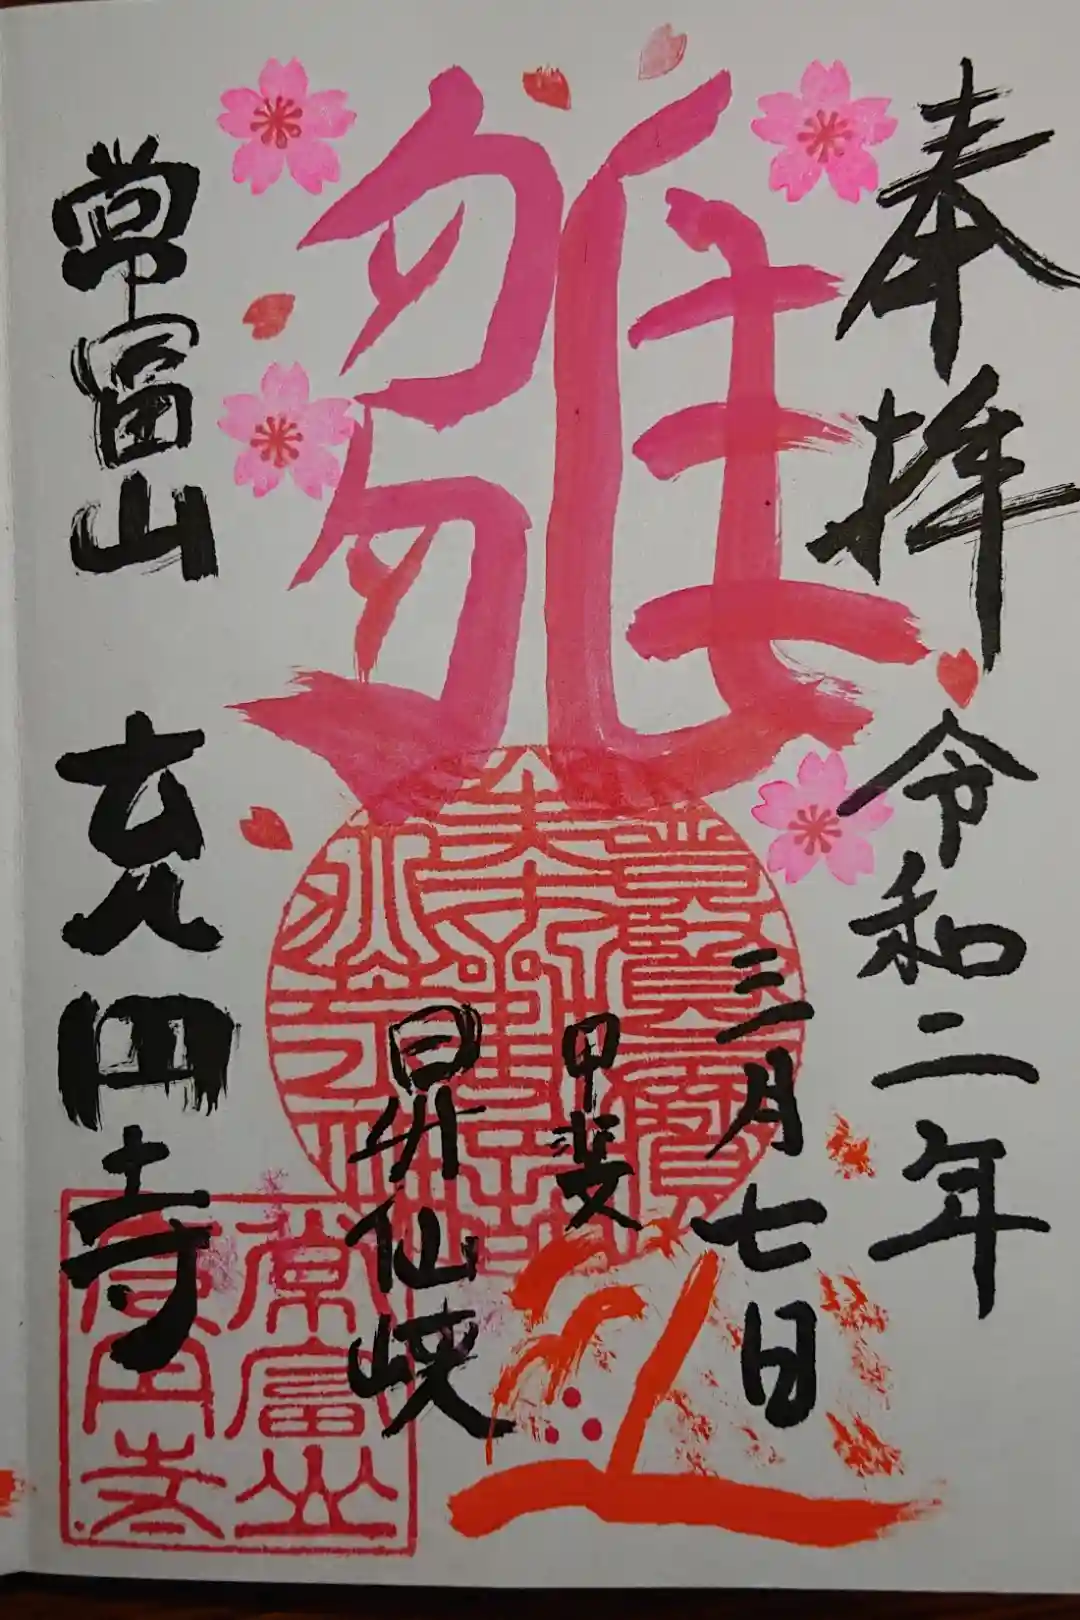 奉拝 令和二年
三月七日
雛
甲斐
昇仙峡
常富山 充円寺
常富山